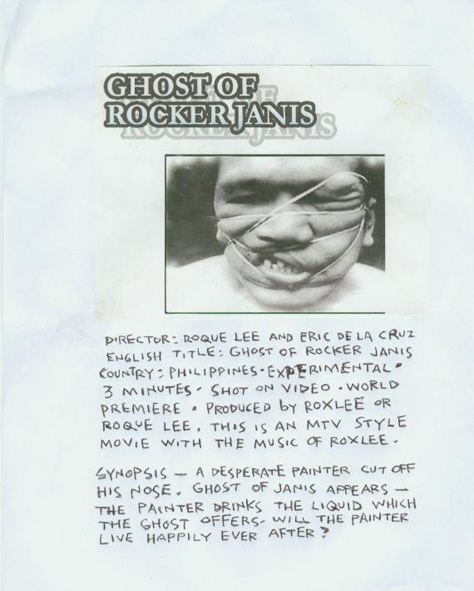 GHOST OF
ROCKER JANIS
DIRECTOR: ROQUE LEE AND ERIC DE LA CRUZ
ENGLISH TITLE: GHOST OF ROCKER JANIS
COUNTRY: PHILIPPINES·EXPERIMENTAL·
3 MINUTES· SHOT ON VIDEO·WORLD
PREMIERE· PRODUCED by ROXLEE OR
ROQUE LEE. THIS IS AN MTV STYLE
MOVIE WITH THE MUSIC OF ROXLEE.
SYNOPSIS — A DESPERATE PAINTER CUT OFF
HIS NOSE. GHOST OF JANIS APPEARS —
THE PAINTER DRINKS THE LIQUID WHICH
THE GHOST OFFERS. WILL THE PAINTER
LIVE HAPPILY EVER AFTER?